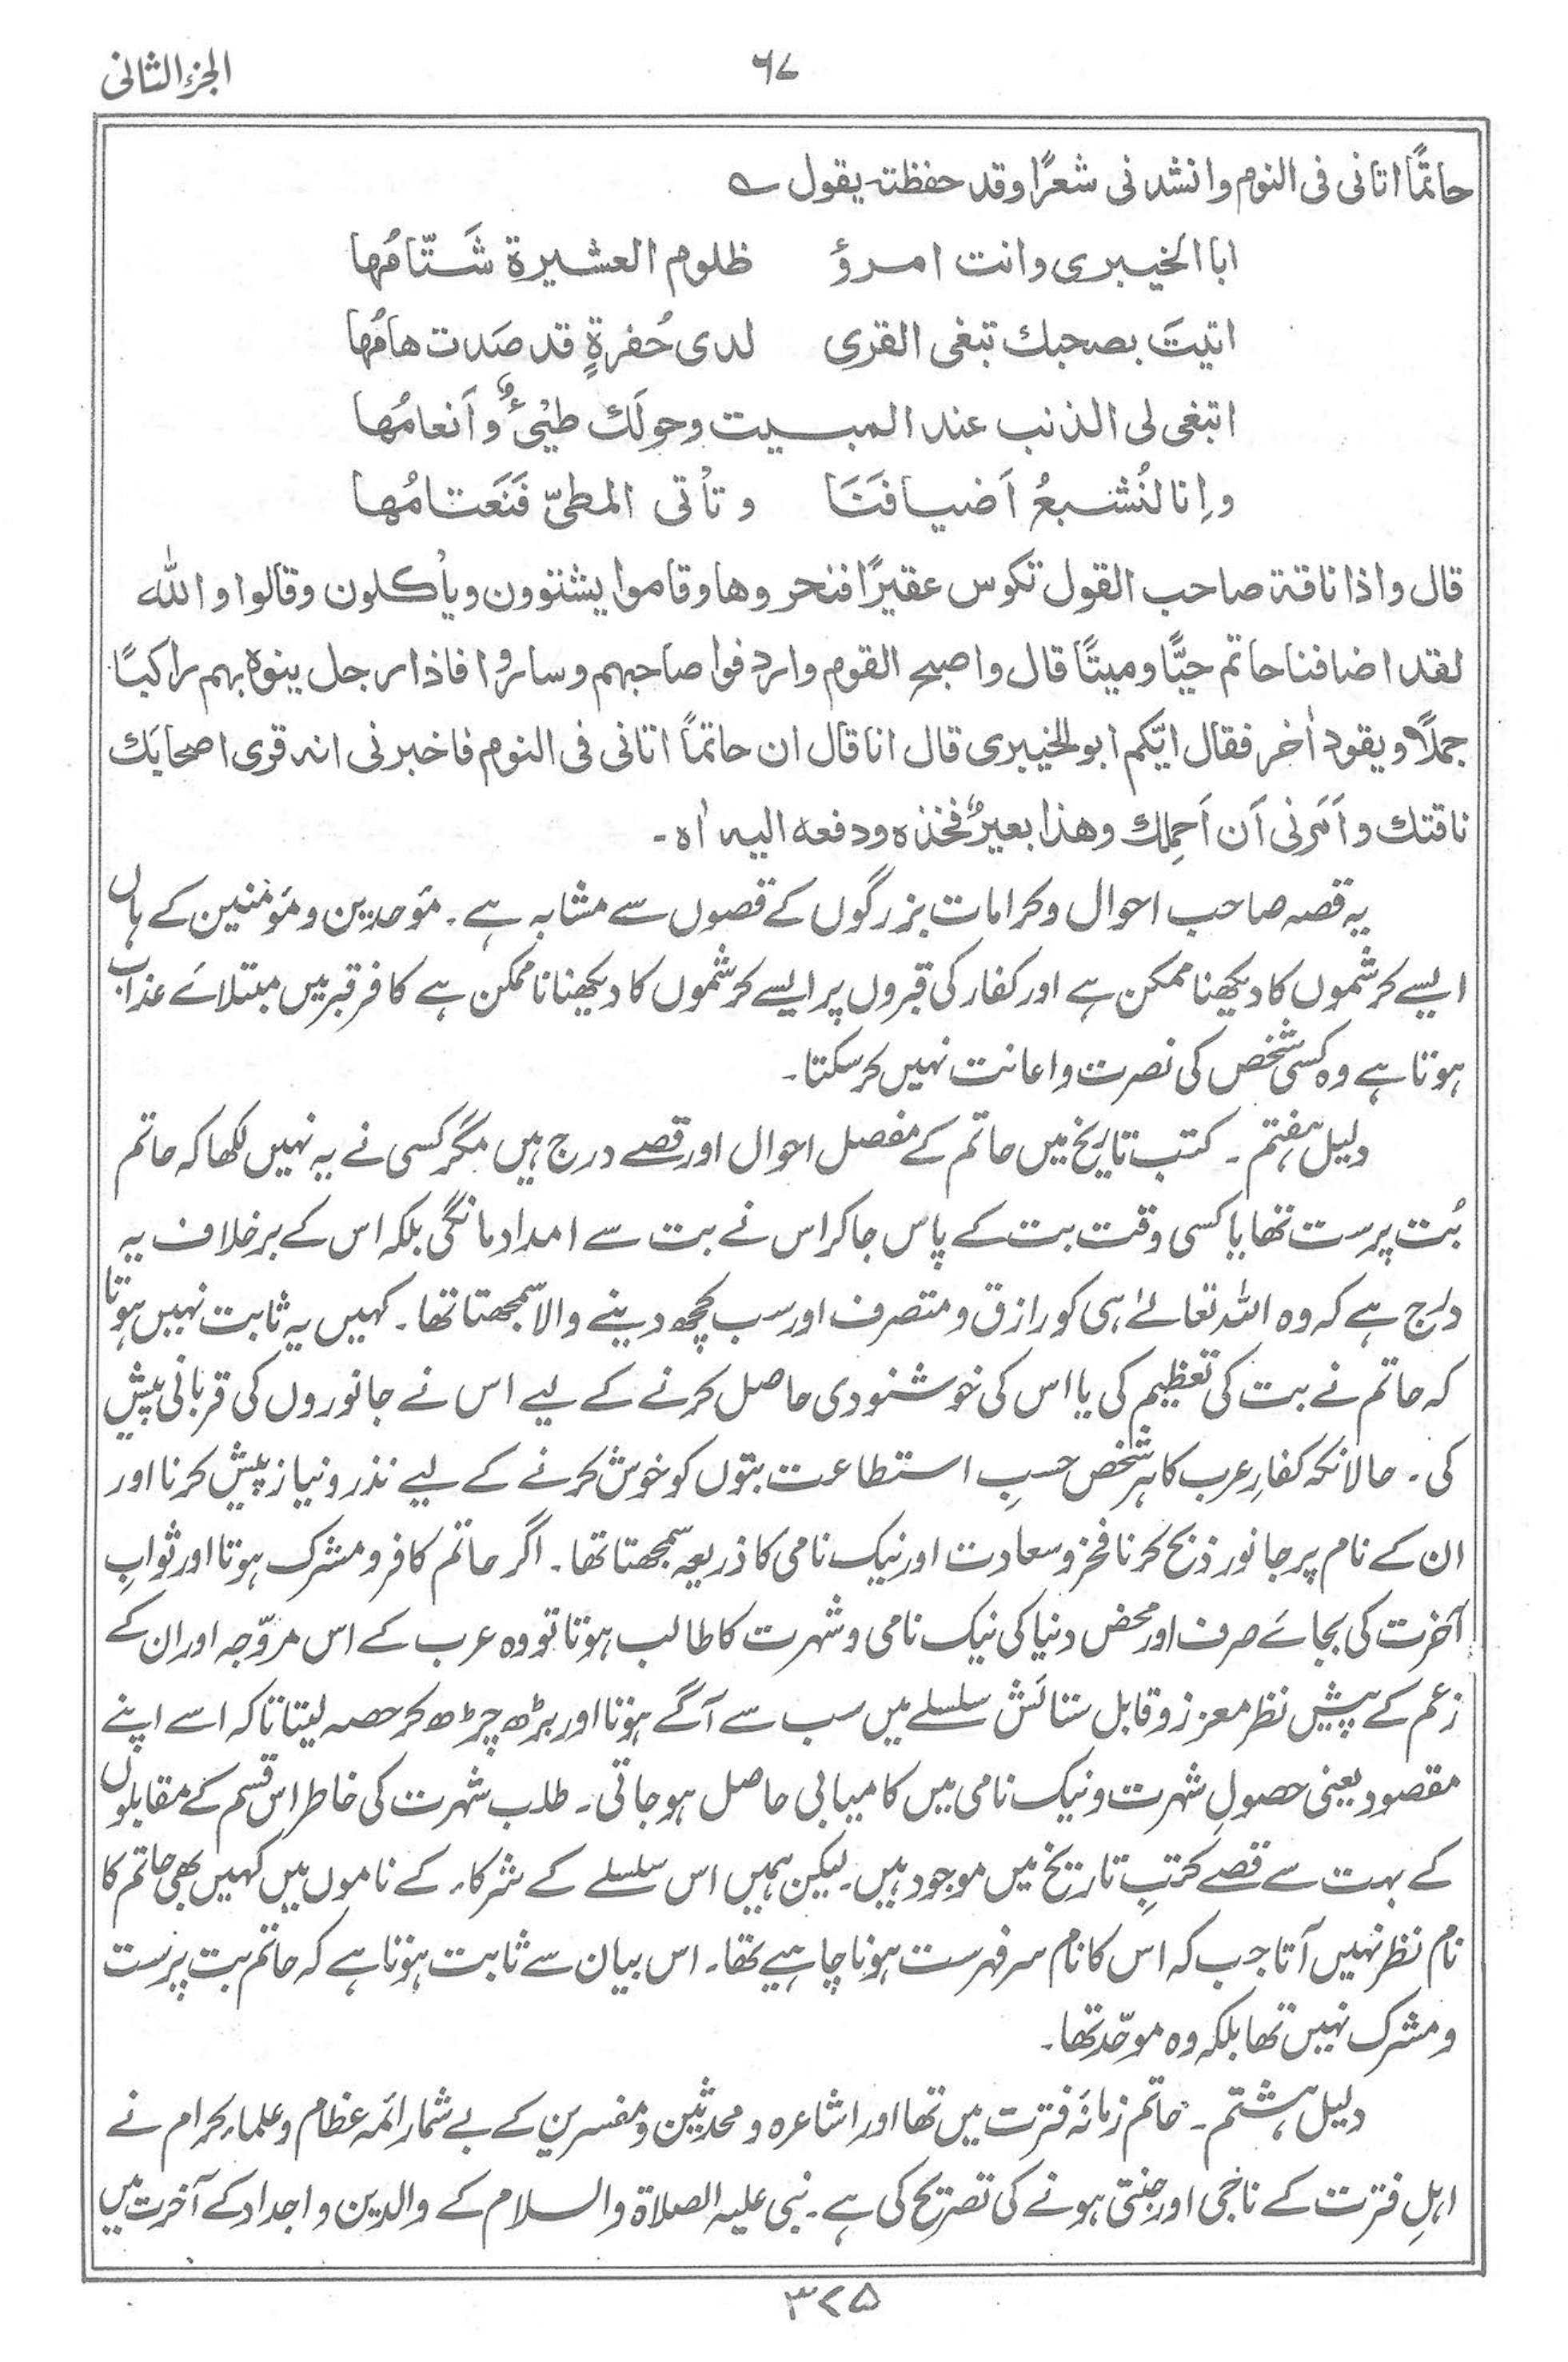 ۶۷
الجزء الثانی
حاتمًا اتانی فی النوم وانشدنی شعرًا وقد حفظتہ یقول ؎
ابا الخیبری وانت امرؤ ظلوم العشیرة شَتّامُها
اتیتَ بصحبك تبغی القری لدی حُفرةٍ قد صَدت هامُها
اتبغی لی الذنب عند المبیت وحولَك طیْئٌ وأَنعامُها
وإنا لنُشبعُ أَضیافَنَا وتأتی المطیّ فَنَعَتامُها
قال واذا ناقة صاحب القول تکوس عقیرًا فنحروها وقاموا یشتوون ویأکلون وقالوا واللہ
لقد اضافنا حاتم حیًّا ومیتًا قال واصبح القوم واردفوا صاحبہم وساروا فاذا رجل ینوہ بہم راکبًا
جملًا ویقود اٰخر فقال ایّکم ابو الخیبری قال انا قال ان حاتمًا اتانی فی النوم فاخبرنی انہ قری اصحابَك
ناقتك وأَمَرنی أَن أَحمِلك وهذا بعیرٌ فخذه ودفعه الیہ اٰه۔
یہ قصہ صاحب احوال وکرامات بزرگوں کے قصوں سے مشابہ ہے۔ مؤحدین ومؤمنین کے ہاں
ایسے کرشموں کا دیکھنا ممکن ہے اور کفار کی قبروں پر ایسے کرشموں کا دیکھنا ناممکن ہے کافر قبر میں مبتلائے عذاب
ہوتا ہے وہ کسی شخص کی نصرت واعانت نہیں کرسکتا۔
دلیل ہفتم۔ کتب تاریخ میں حاتم کے مفصل احوال اور قصے درج ہیں مگر کسی نے یہ نہیں لکھا کہ حاتم
بُت پرست تھا یا کسی وقت بت کے پاس جاکر اس نے بت سے امداد مانگی بلکہ اس کے برخلاف یہ
درج ہے کہ وہ اللہ تعالےٰ ہی کو رازق ومتصرف اور سب کچھ دینے والا سمجھتا تھا۔ کہیں یہ ثابت نہیں ہوتا
کہ حاتم نے بت کی تعظیم کی یا اس کی خوشنودی حاصل کرنے کے لیے اس نے جانوروں کی قربانی پیش
کی۔ حالانکہ کفارِ عرب کا ہر شخص حسبِ استطاعت بتوں کو خوش کرنے کے لیے نذر ونیاز پیش کرنا اور
ان کے نام پر جانور ذبح کرنا فخر وسعادت اور نیک نامی کا ذریعہ سمجھتا تھا۔ اگر حاتم کافر ومشرک ہوتا اور ثوابِ
آخرت کی بجائے صرف اور محض دنیا کی نیک نامی وشہرت کا طالب ہوتا تو وہ عرب کے اس مروّجہ اور ان کے
زعم کے پیشِ نظر معزز وقابل ستائش سلسلے میں سب سے آگے ہوتا اور بڑھ چڑھ کر حصہ لیتا تاکہ اسے اپنے
مقصود یعنی حصولِ شہرت ونیک نامی میں کامیابی حاصل ہوجاتی۔ طلب شہرت کی خاطر اس قسم کے مقابلوں
کے بہت سے قصے کتبِ تاریخ میں موجود ہیں۔ لیکن ہمیں اس سلسلے کے شرکاء کے ناموں میں کہیں بھی حاتم کا
نام نظر نہیں آتا جب کہ اس کا نام سرفہرست ہونا چاہیے تھا۔ اس بیان سے ثابت ہوتا ہے کہ حاتم بت پرست
ومشرک نہیں تھا بلکہ وہ موحّد تھا۔
دلیل ہشتم۔ حاتم زمانۂ فترت میں تھا اور اشاعرہ ومحدثین ومفسرین کے بے شمار ائمہ عظام وعلماء کرام نے
اہلِ فترت کے ناجی اور جنتی ہونے کی تصریح کی ہے۔ نبی علیہ الصلاة والسلام کے والدین واجداد کے آخرت میں
۳۲۵